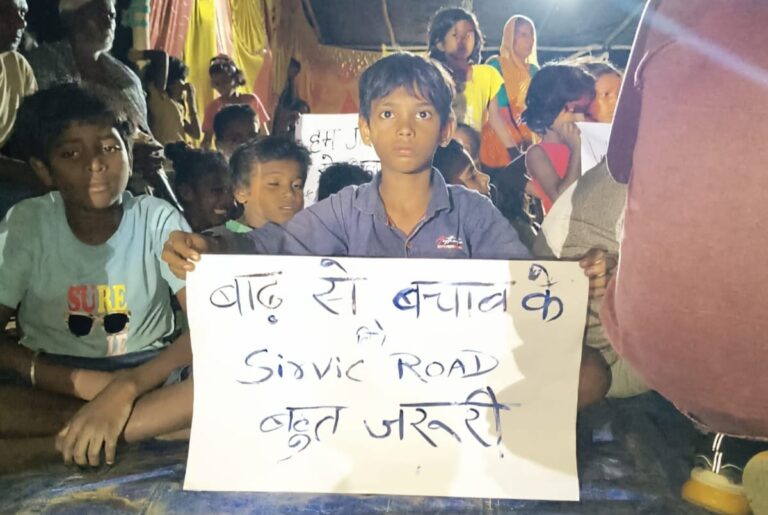 हम
बाढ़ से बचाव के
लिए
Sirvic ROAD
बहुत जरूरी
SURE